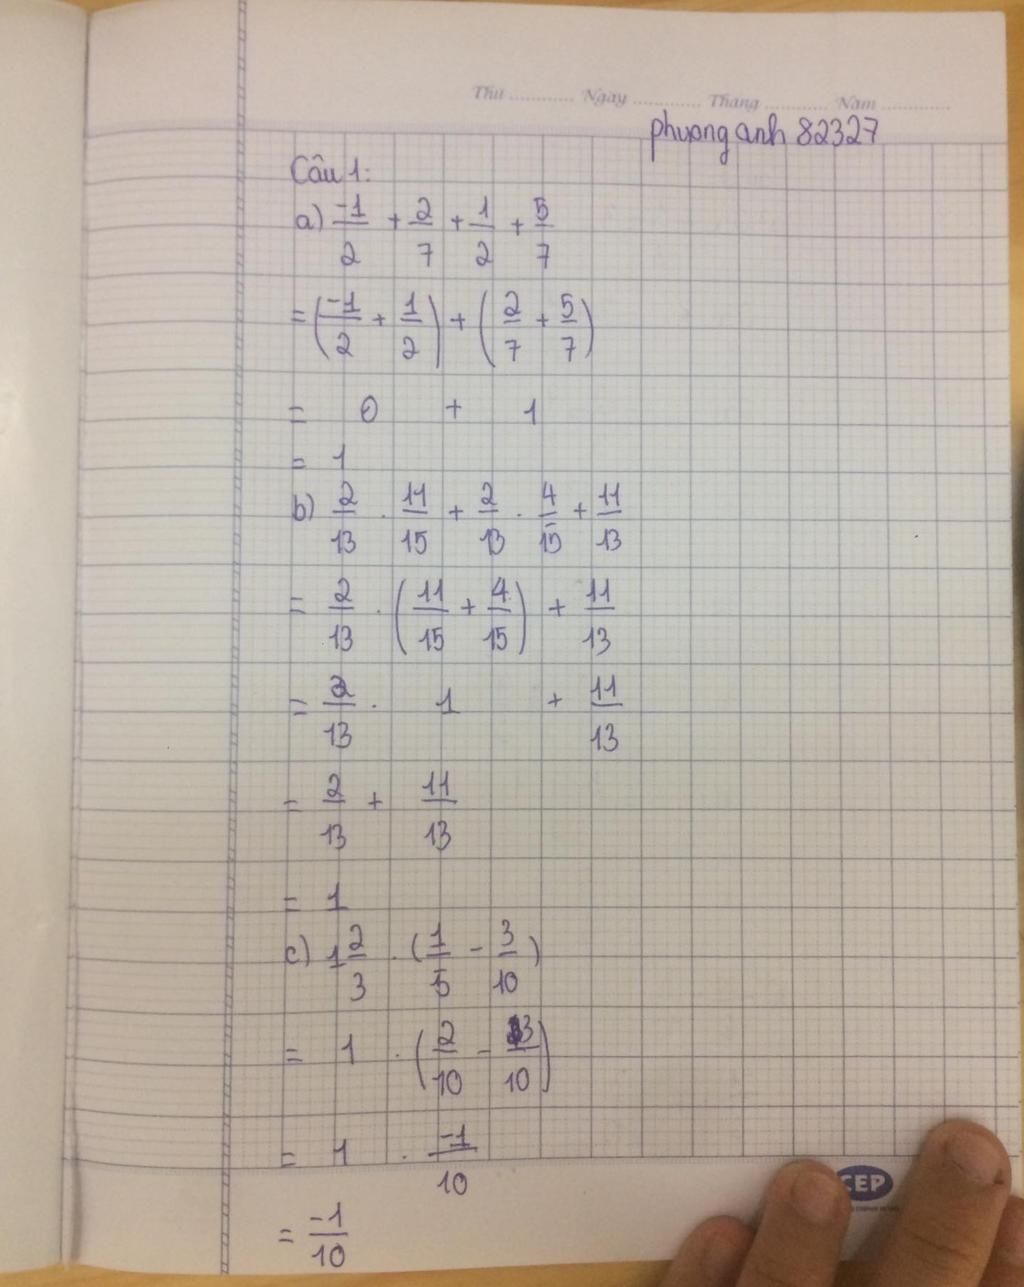 Thứ ........... Ngày ........... Tháng ........... Năm ...........
phương anh 82327
Câu 1:
a) -1/2 + 2/7 + 1/2 + 5/7
= (-1/2 + 1/2) + (2/7 + 5/7)
= 0 + 1
= 1
b) 2/13 . 11/15 + 2/13 . 4/15 + 11/13
= 2/13 . (11/15 + 4/15) + 11/13
= 2/13 . 1 + 11/13
= 2/13 + 11/13
= 1
c) 1 2/3 . (1/5 - 3/10)
= 1 . (2/10 - 3/10)
= 1 . -1/10
= -1/10
CEP